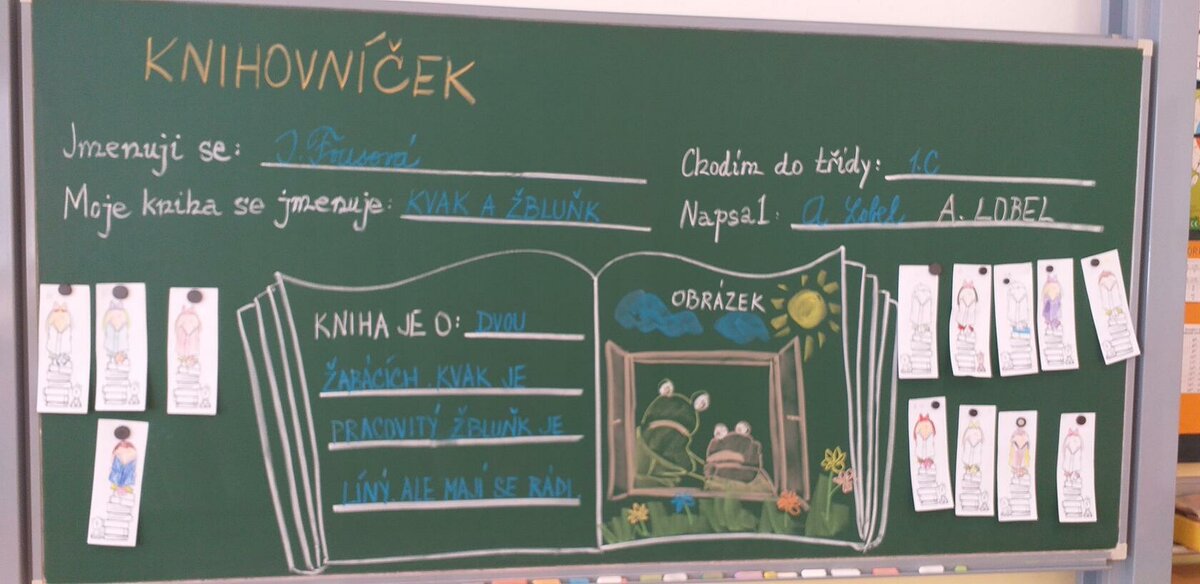 KNIHOVNÍČEK
Jmenuji se: J. Fousová
Chodím do třídy: 1.C
Moje kniha se jmenuje: KVAK A ŽBLUŇK
Napsal: A. Lobel A. LOBEL
KNIHA JE O: DVOU
ŽABÁCÍCH. KVAK JE
PRACOVITÝ ŽBLUŇK JE
LÍNÝ. ALE MAJÍ SE RÁDI
OBRÁZEK